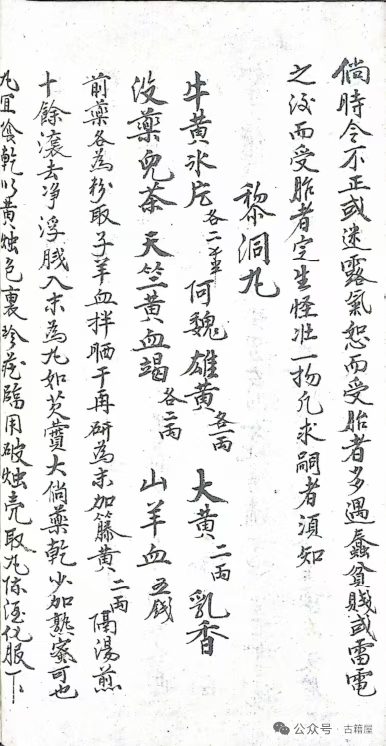 倘時令不正或迷露氣恕而受胎者多遇蠢貧賤或雷電
之後而受胎者定生怪壯一物凡求嗣者須知
黎洞丸
牛黃冰片各二錢半 何魏雄黃各一兩 大黃二兩 乳香
没藥兒茶 天竺黃血竭各二兩 山羊血五錢
前藥各為粉取子羊血拌晒干再研為末加籐黃二兩 隔湯煎
十餘滚去净浮賤入末為丸如芡實大倘藥乾少加熟蜜可也
丸宜飧乾以黃蚀色裏珍茂臨用破蚀壳取丸陈酒化服下
公众号·古籍屋